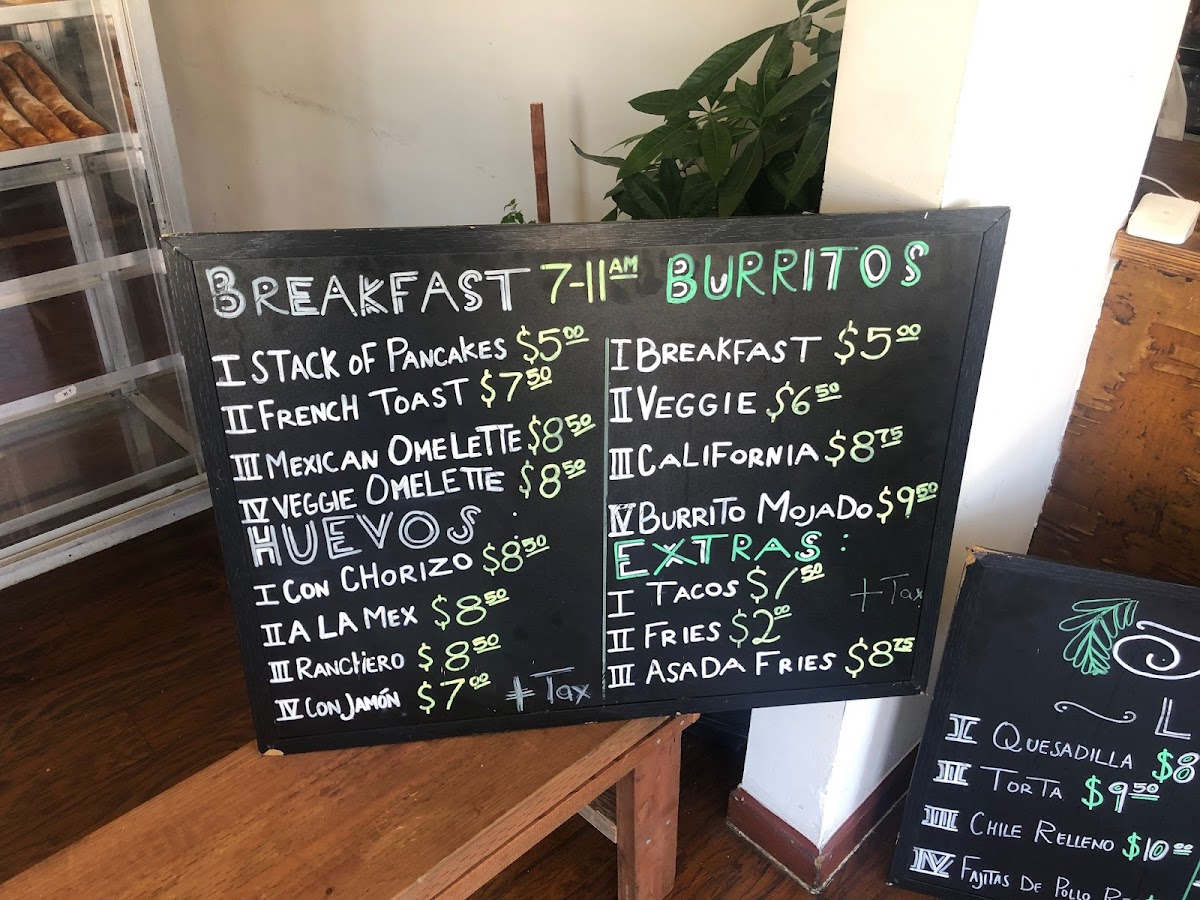 BREAKFAST 7-11AM
I STACK OF PANCAKES $5.00
II FRENCH TOAST $7.50
III MEXICAN OMELETTE $8.50
IV VEGGIE OMELETTE $8.50
HUEVOS
I CON CHORIZO $8.50
II A LA MEX $8.50
III RANCHERO $8.50
IV CON JAMÓN $7.00
+ Tax
BURRITOS
I BREAKFAST $5.00
II VEGGIE $6.50
III CALIFORNIA $8.75
IV BURRITO MOJADO $9.50
EXTRAS:
I TACOS $1.50
+ Tax
II FRIES $2.00
III ASADA FRIES $8.75
I QUESADILLA $8
II TORTA $9.50
III CHILE RELLENO $10.00
IV FAJITAS DE POLLO